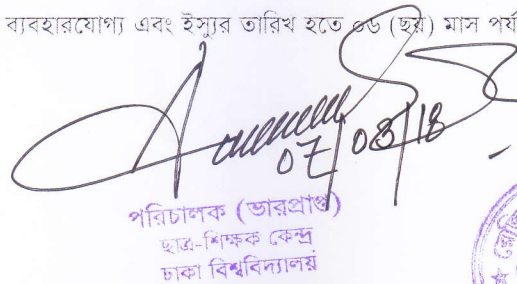 ব্যবহারযোগ্য এবং ইস্যুর তারিখ হতে ০৬ (ছয়) মাস পর্য
07/08/18
পরিচালক (ভারপ্রাপ্ত)
ছাত্র-শিক্ষক কেন্দ্র
ঢাকা বিশ্ববিদ্যালয়